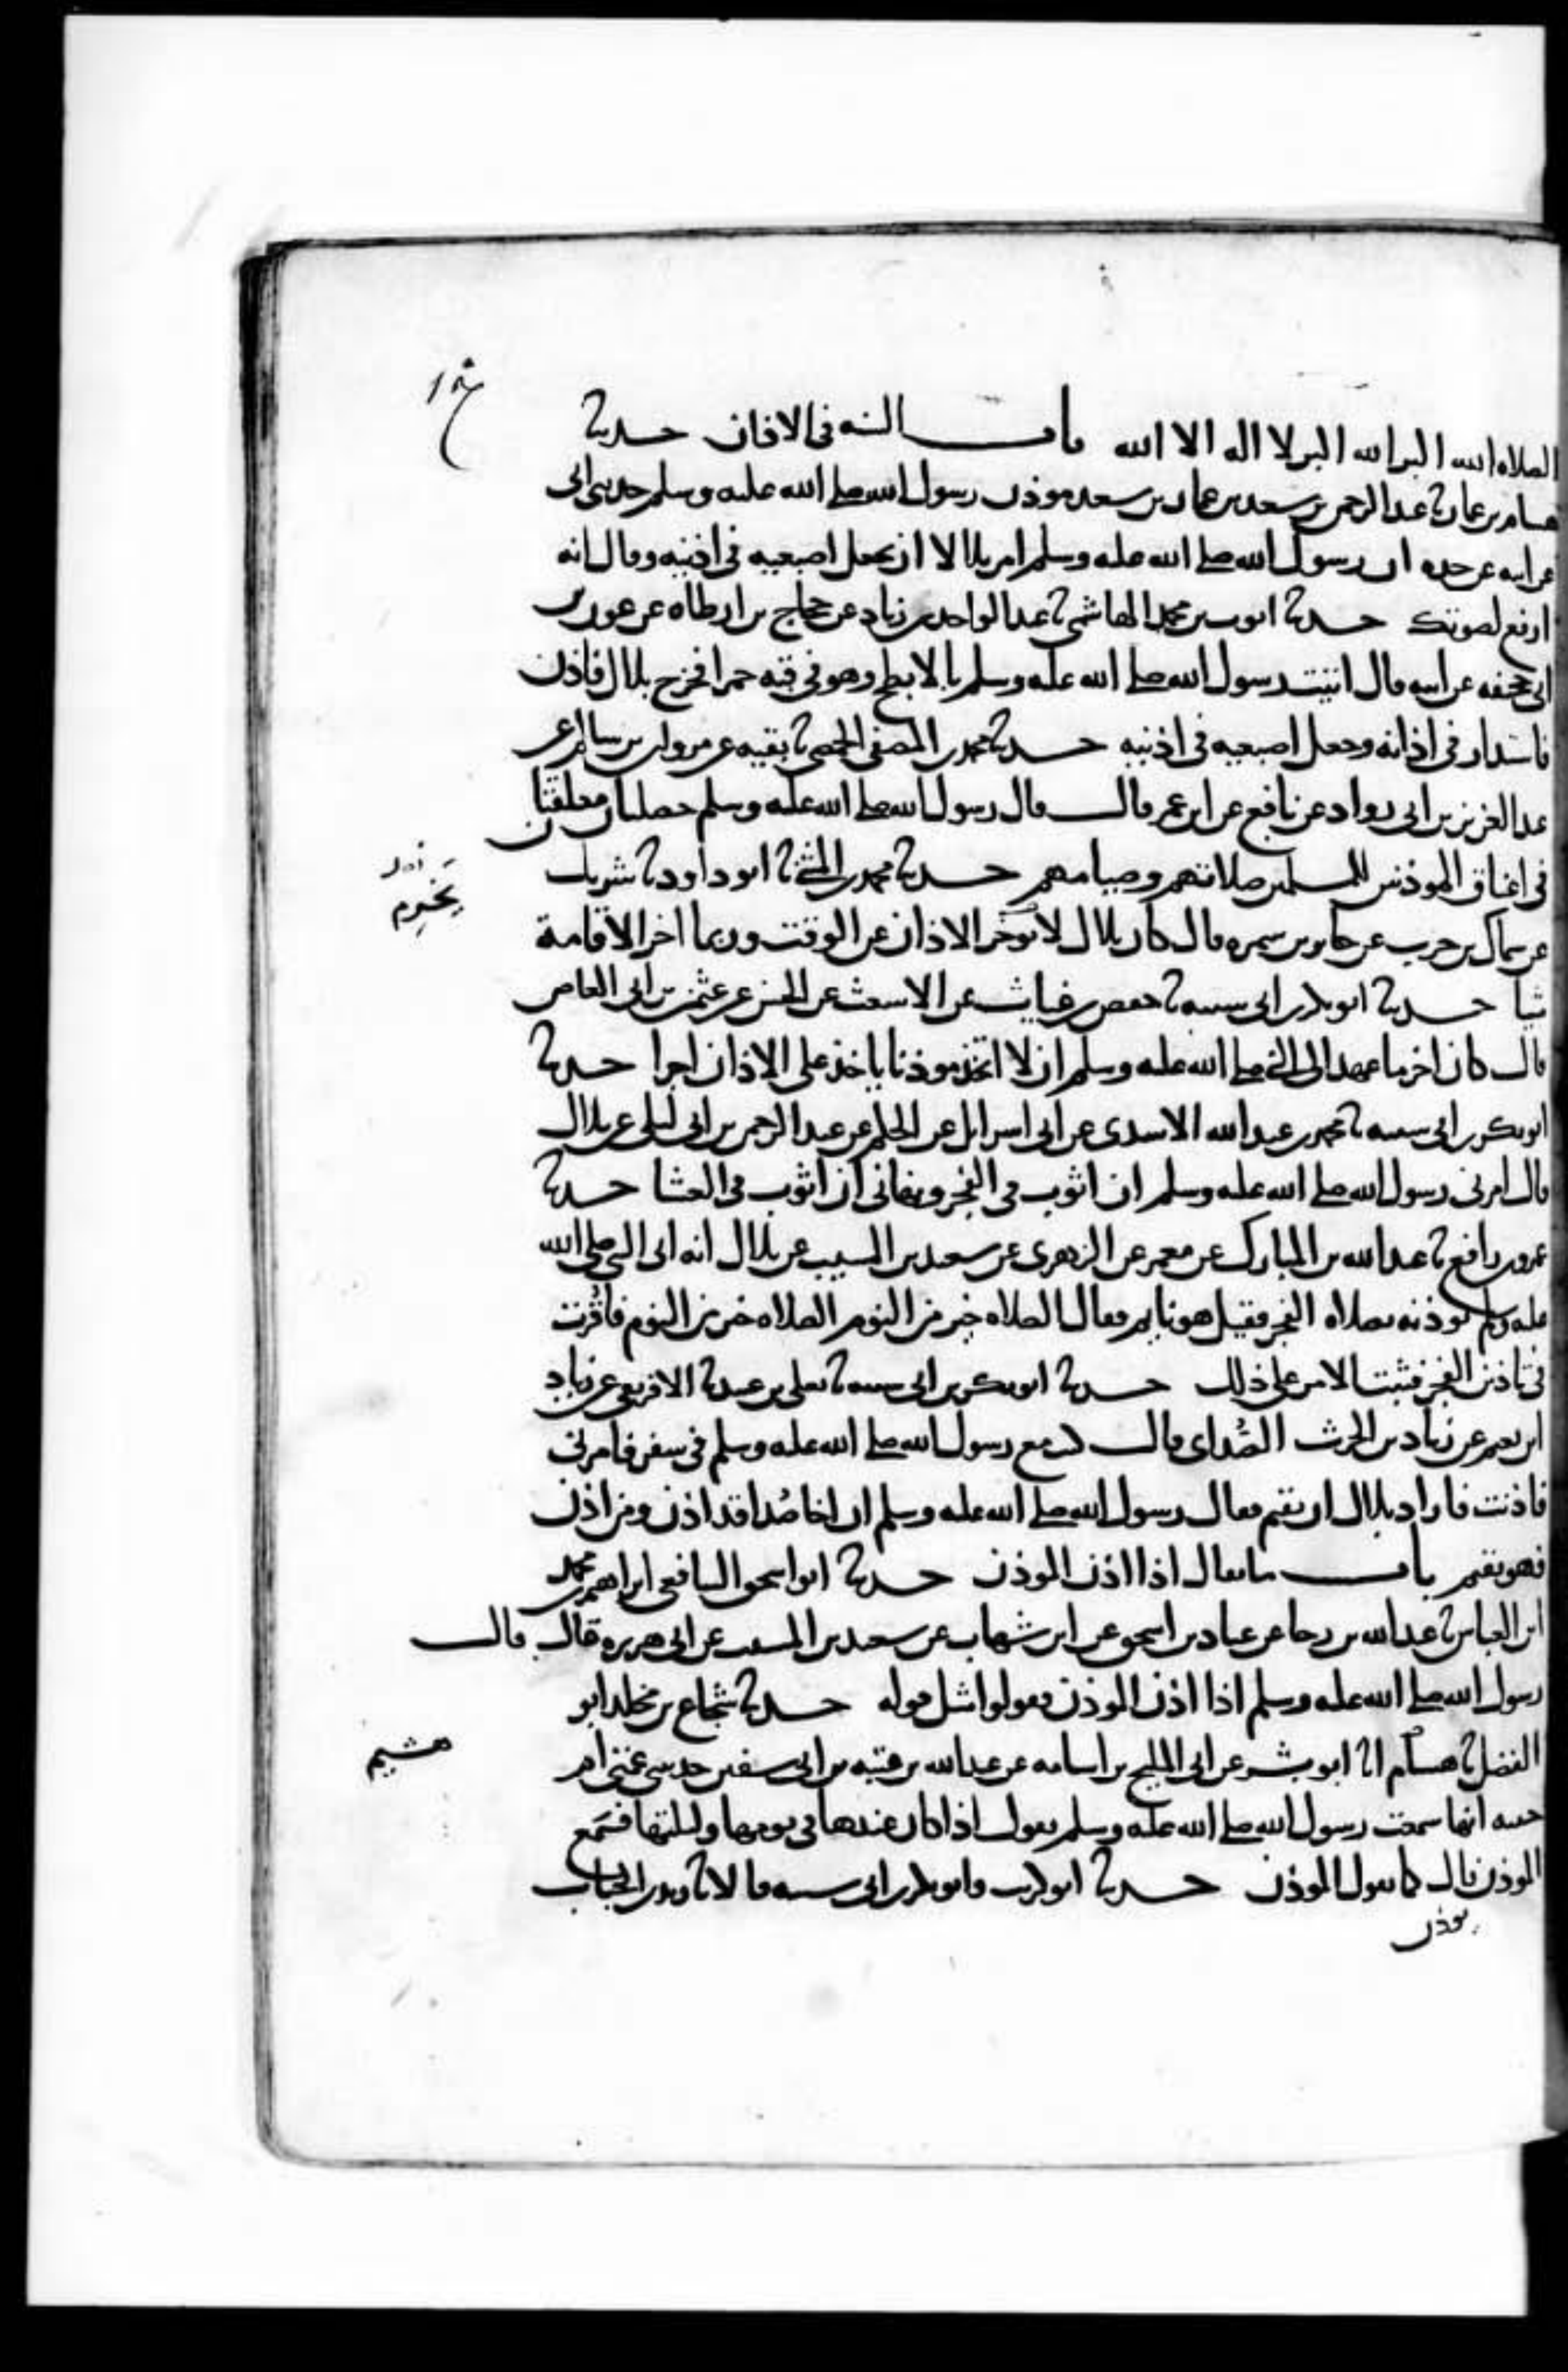 الصلاه الله اكبر الله اكبر لا اله الا الله باب السنه في الاذان حدثنا
هشام بن عمار نا عبد الرحمن بن سعد بن عمار بن سعد موذن رسول الله صلى الله عليه وسلم حدثني ابي
عن ابيه عن جده ان رسول الله صلى الله عليه وسلم امر بلالا ان يجعل اصبعيه في اذنيه وقال انه
ارفع لصوتك حدثنا ايوب بن محمد الهاشمي نا عبد الواحد بن زياد عن حجاج بن ارطاه عن عون بن
ابي جحيفه عن ابيه قال اتيت رسول الله صلى الله عليه وسلم بالابطح وهو في قبه حمرا فخرج بلال فاذن
فاستدار في اذانه وجعل اصبعيه في اذنيه حدثنا محمد بن المصفى الحمصي نا بقيه عن مروان بن سالم عن
عبد العزيز بن ابي رواد عن نافع عن ابن عمر قال قال رسول الله صلى الله عليه وسلم خصلتان معلقتان
في اعناق الموذنين للمسلمين صلاتهم وصيامهم حدثنا محمد بن المثنى نا ابو داود نا شريك
عن سماك بن حرب عن جابر بن سمره قال كان بلال لا يوخر الاذان عن الوقت وربما اخر الاقامة
شيا حدثنا ابو بكر بن ابي شيبه نا حفص بن غياث عن الاشعث عن الحسن عن عثمن بن ابي العاص
قال كان اخر ما عهد الى النبي صلى الله عليه وسلم ان لا اتخذ موذنا ياخذ على الاذان اجرا حدثنا
ابو بكر بن ابي شيبه نا محمد بن عبد الله الاسدي عن ابي اسرايل عن الحكم عن عبد الرحمن بن ابي ليلى عن بلال
قال امرني رسول الله صلى الله عليه وسلم ان اثوب في الفجر ونهاني ان اثوب في العشا حدثنا
عمرو بن رافع نا عبد الله بن المبارك عن معمر عن الزهري عن سعيد بن المسيب عن بلال انه اتى النبي صلى الله
عليه وسلم يوذنه بصلاه الفجر فقيل هو نايم فقال الصلاه خير من النوم الصلاه خير من النوم فاقرت
في تاذين الفجر فثبت الامر على ذلك حدثنا ابو بكر بن ابي شيبه نا يعلى بن عبيد نا الافريقي عن زياد
ابن نعيم عن زياد بن الحرث الصُداي قال كنت مع رسول الله صلى الله عليه وسلم في سفر فامرني
فاذنت فاراد بلال ان يقيم فقال رسول الله صلى الله عليه وسلم ان اخا صُدا قد اذن ومن اذن
فهو يقيم باب ما يقال اذا اذن الموذن حدثنا ابو اسحق الشافعي ابراهيم بن محمد
ابن العباس نا عبد الله بن رجا عن عباد بن اسحق عن ابن شهاب عن سعيد بن المسيب عن ابي هريره قال قال
رسول الله صلى الله عليه وسلم اذا اذن الموذن فقولوا مثل قوله حدثنا شجاع بن مخلد ابو
الفضل نا هشام انا ابو بشر عن ابي المليح بن اسامه عن عبد الله بن عتبه بن ابي سفين حدثتني عمتي ام
حبيبه انها سمعت رسول الله صلى الله عليه وسلم يقول اذا كان عندها في يومها وليلتها فسَمع
الموذن قال كما يقول الموذن حدثنا ابو كريب وابو بكر بن ابي شيبه قالا نا زيد بن الحباب
يوذن
يَخرِم
هشيم